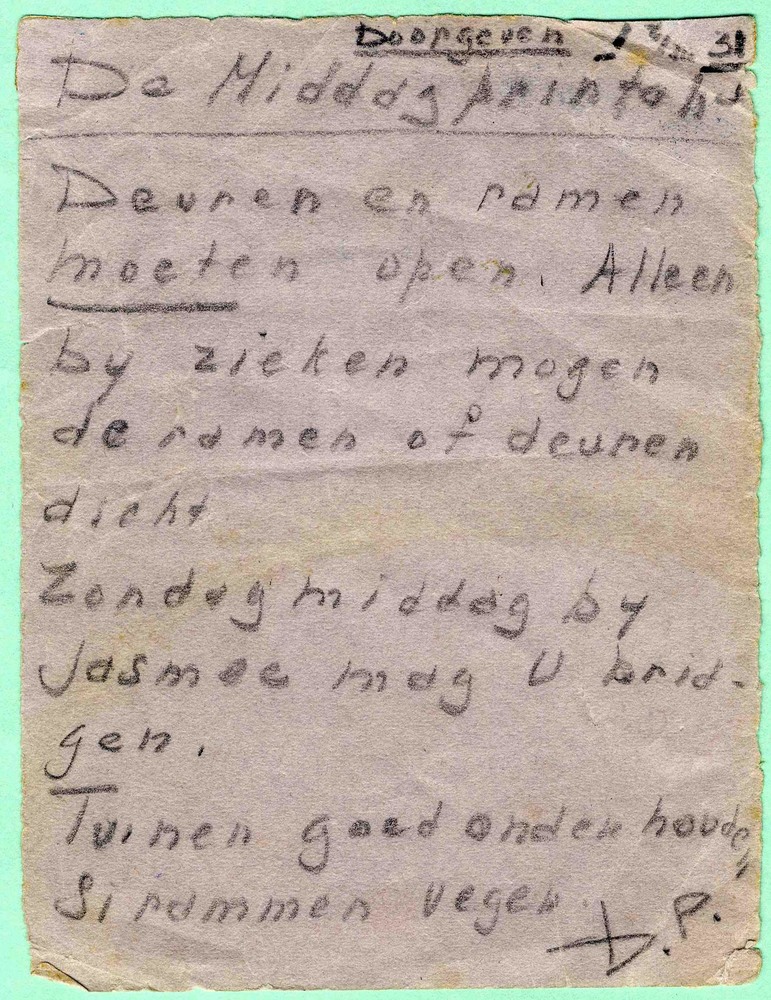 Doorgeven 1 t/m 31
De Middagprintah's
Deuren en ramen
moeten open. Alleen
by zieken mogen
de ramen of deuren
dicht
Zondagmiddag by
Jasmee mag U brid-
gen.
Tuinen goed onderhouden
Sirammen vegen.
D.P.